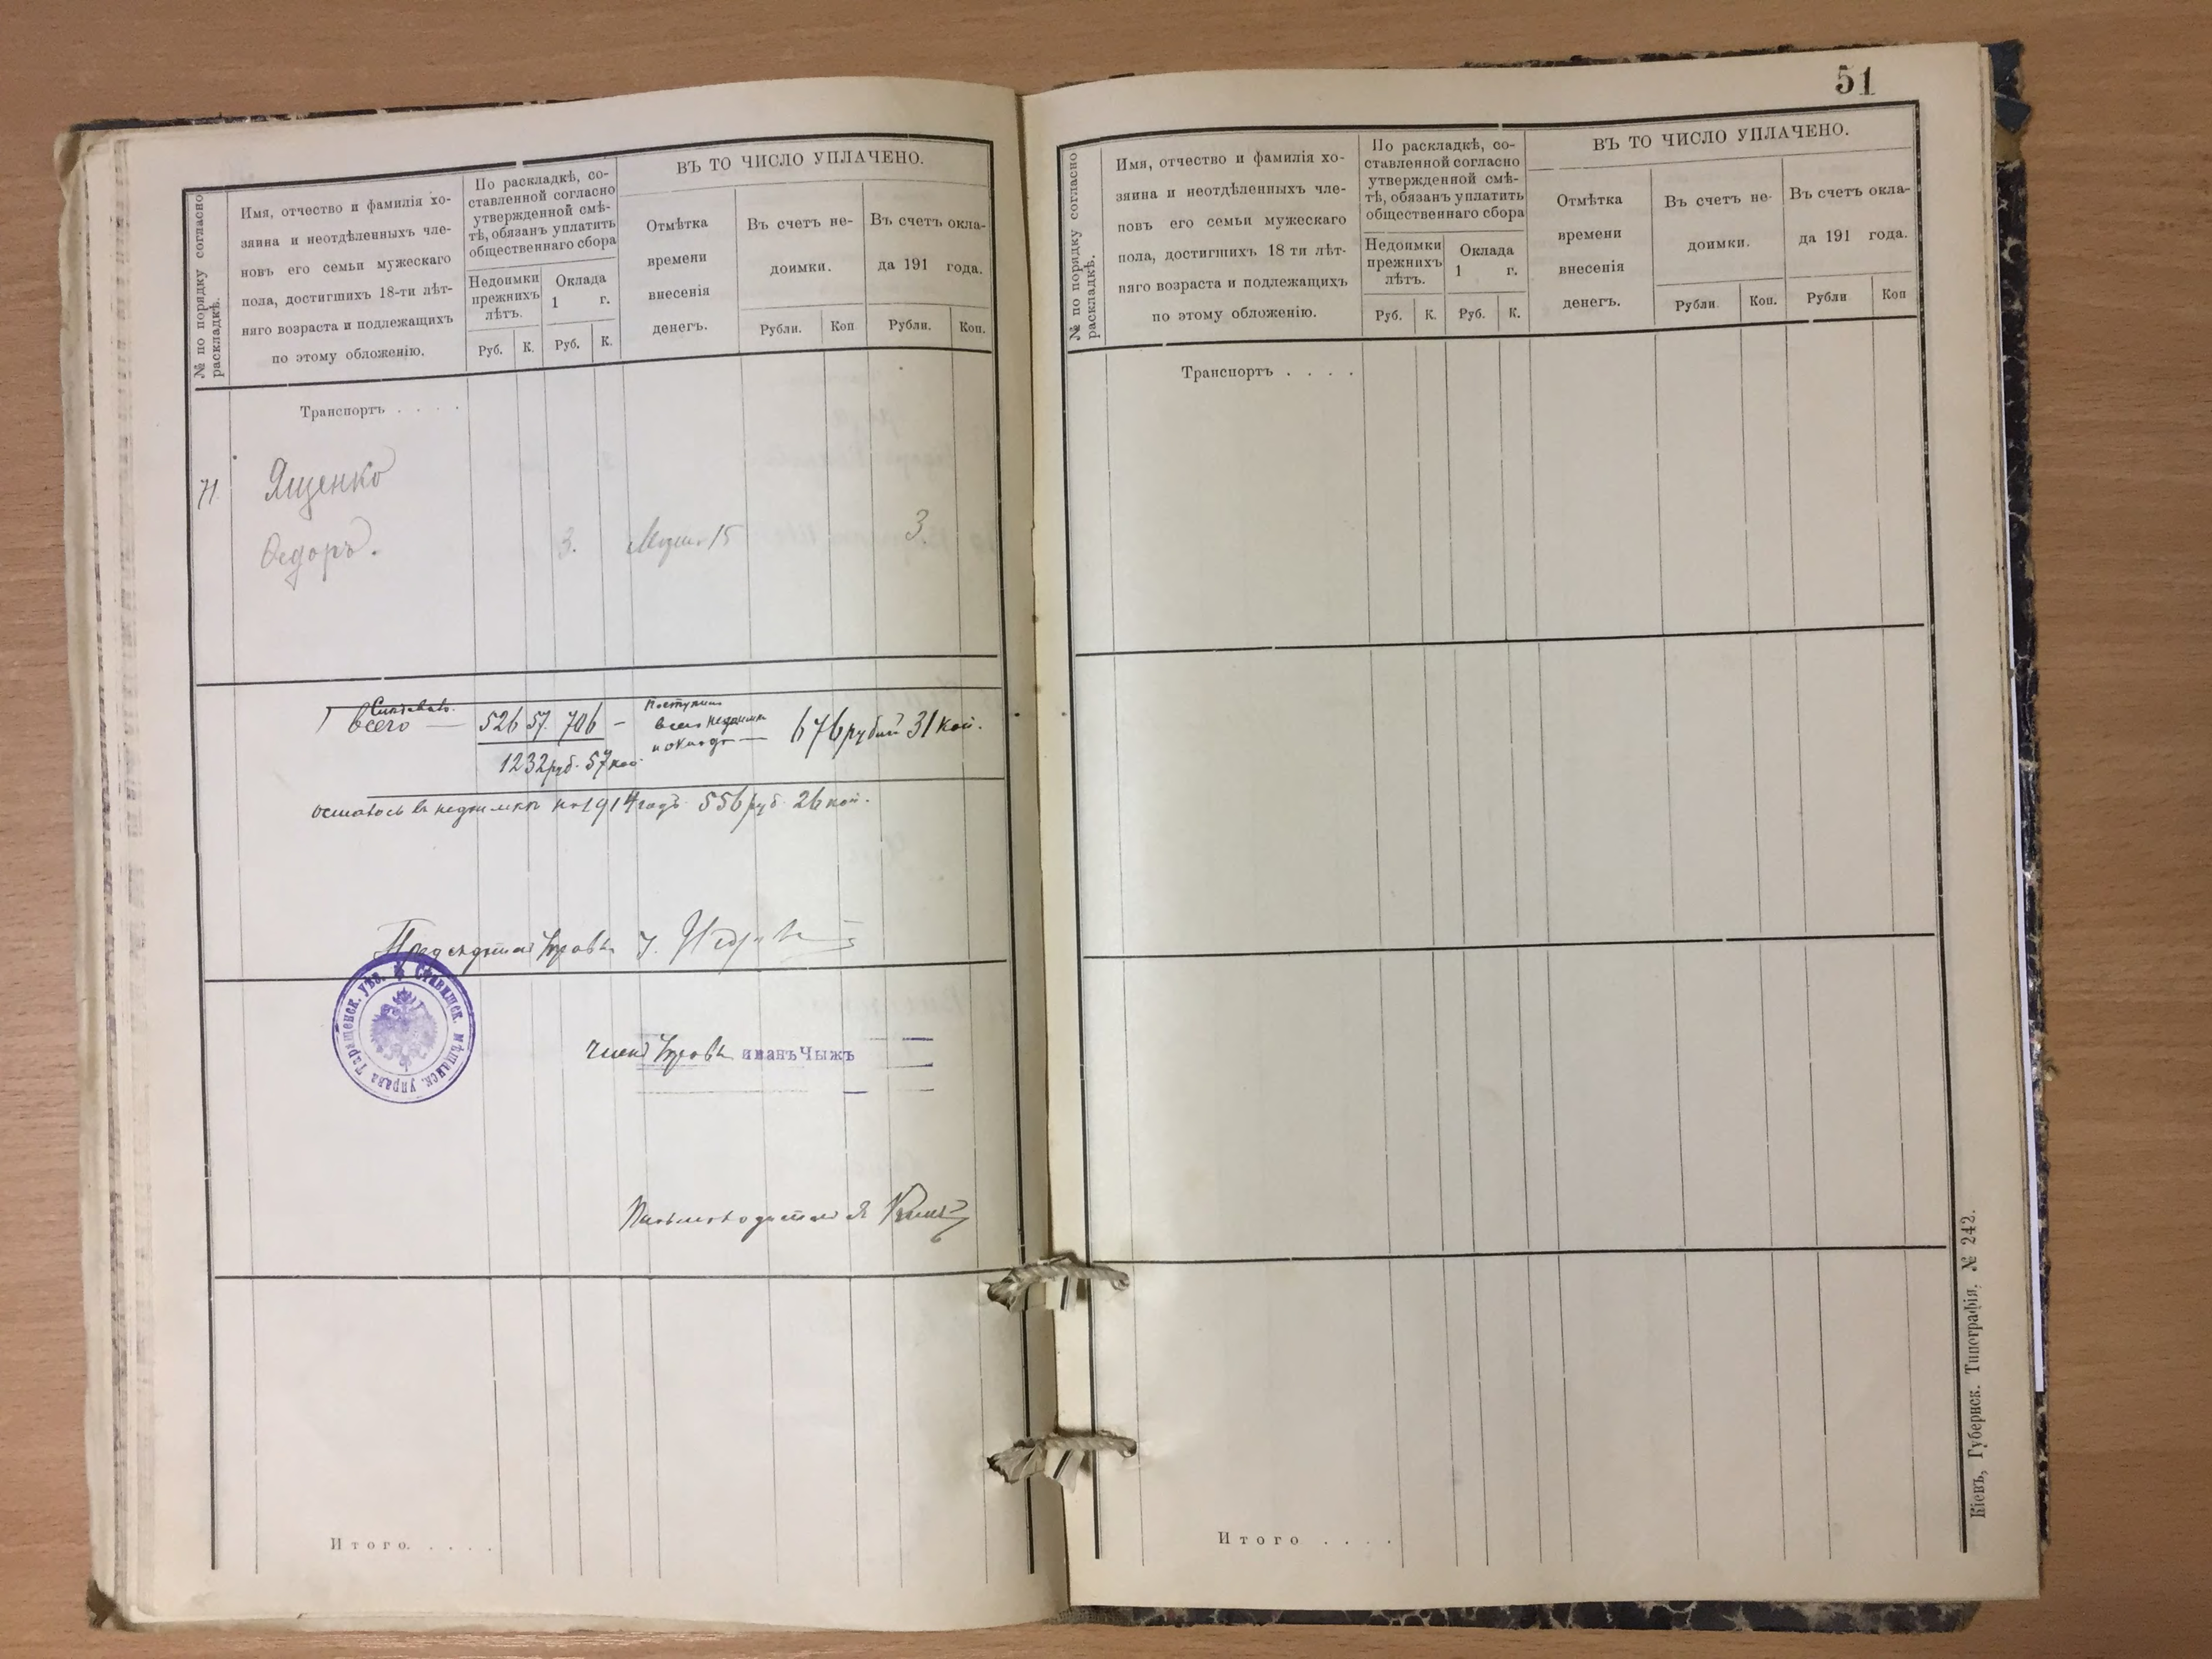 № по порядку согласно
раскладкѣ.
Имя, отчество и фамилія хо-
зяина и неотдѣленныхъ чле-
новъ его семьи мужескаго
пола, достигшихъ 18-ти лѣт-
няго возраста и подлежащихъ
по этому обложенію.
По раскладкѣ, со-
ставленной согласно
утвержденной смѣ-
тѣ, обязанъ уплатить
общественнаго сбора
Недоимки
прежнихъ
лѣтъ.
Оклада
1 г.
Руб. К. Руб. К.
ВЪ ТО ЧИСЛО УПЛАЧЕНО.
Отмѣтка
времени
внесенія
денегъ.
Въ счетъ не-
доимки.
Въ счетъ окла-
да 191 года.
Рубли. Коп Рубли. Коп.
Транспортъ . . . .
71 Ященко
Ѳедоръ. 3. 15 3.
Всего — 526 57. 706 —
Поступило
всего недоимки
676 рублей 31 коп.
1232 руб. 57 коп
осталось въ недоимкѣ на 1914 годъ 556 руб. 26 коп.
Предсѣдатель Управы
Таращенск. уѣз. Ставищск. мѣщанск. управа
Членъ Управы иванъ Чыжъ
Письмоводитель
Итого. . . . .
51
№ по порядку согласно
раскладкѣ.
Имя, отчество и фамилія хо-
зяина и неотдѣленныхъ чле-
новъ его семьи мужескаго
пола, достигшихъ 18 ти лѣт-
няго возраста и подлежащихъ
по этому обложенію.
По раскладкѣ, со-
ставленной согласно
утвержденной смѣ-
тѣ, обязанъ уплатить
общественнаго сбора
Недоимки
прежнихъ
лѣтъ.
Оклада
1 г.
Руб. К. Руб. К.
ВЪ ТО ЧИСЛО УПЛАЧЕНО.
Отмѣтка
времени
внесенія
денегъ.
Въ счетъ не-
доимки.
Въ счетъ окла-
да 191 года.
Рубли. Коп. Рубли Коп
Транспортъ . . . .
Итого . . . .
Кіевъ, Губернск. Типографія, № 242.